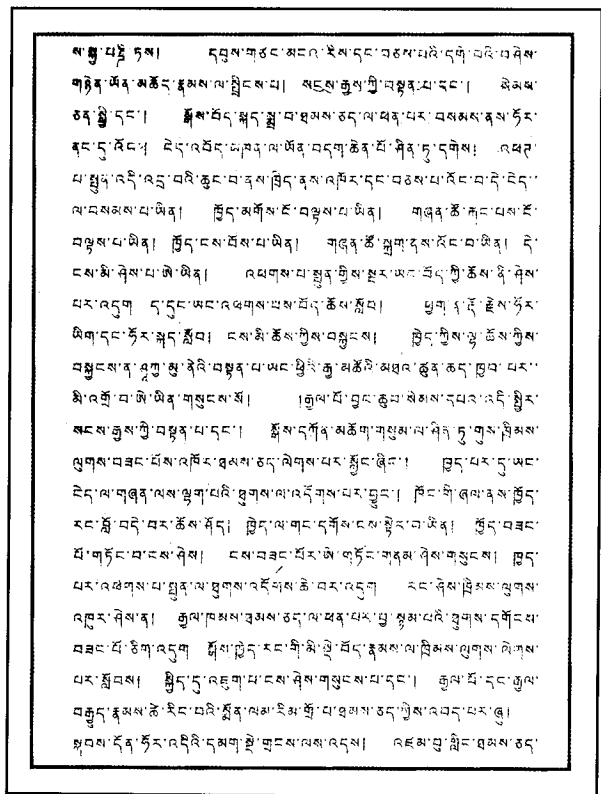 ས་སྐྱ་པཎྜི་ཏས། དབུས་གཙང་མངའ་རིས་དང་བཅས་པའི་དགེ་བའི་བཤེས་
གཉེན་ཡོན་མཆོད་རྣམས་ལ་སྤྲིངས་པ། སངས་རྒྱས་ཀྱི་བསྟན་པ་དང་། སེམས་
ཅན་སྤྱི་དང་། སྒོས་བོད་སྐད་སྨྲ་བ་ཐམས་ཅད་ལ་ཕན་པར་བསམས་ནས་ཧོར་
ནང་དུ་འོང་། ངེད་འབོད་མཁན་ལ་ཡོན་བདག་ཆེན་པོ་ཤིན་ཏུ་དགེས། འཕཊ་
པ་སྤུན་འདི་འདྲ་བའི་ཆུང་བ་ནས་ཁྲིད་ནས་འཁོར་དང་བཅས་པ་འོང་བ་དེ་ངེད་
ལ་བསམས་པ་ཡིན། ཁྱོད་མགོས་ངོ་བལྟས་པ་ཡིན། གཞན་ཚོ་རྐང་པས་ངོ་
བལྟས་པ་ཡིན། ཁྱོད་ངས་བོས་པ་ཡིན། གཞན་ཚོ་སྐྲག་ནས་འོང་བ་ཡིན། དེ་
ངས་མི་ཤེས་པ་ཨེ་ཡིན། འཕགས་པ་སྤུན་གྱིས་སྔར་ཡང་བོད་ཀྱི་ཆོས་ནི་ཤེས་
པར་འདུག ད་དུང་ཡང་འཕགས་པས་བོད་ཆོས་སློབ། ཕྱག་ན་རྡོ་རྗེས་ཧོར་
ཡིག་དང་ཧོར་སྐད་སློབ། ངས་མི་ཆོས་ཀྱིས་བསྐྱངས། ཁྱེད་ཀྱིས་ལྷ་ཆོས་ཀྱིས་
བསྐྱངས་ན་ཤཱཀྱ་མུ་ནེའི་བསྟན་པ་ཡང་ཕྱིའི་རྒྱ་མཚོའི་མཐའ་ཚུན་ཆད་ཁྱབ་པར་
མི་འགྲོ་བ་ཨེ་ཡིན་གསུངས་སོ། །རྒྱལ་པོ་བྱང་ཆུབ་སེམས་དཔའ་འདི་སྤྱིར་
སངས་རྒྱས་ཀྱི་བསྟན་པ་དང་། སྒོས་དཀོན་མཆོག་གསུམ་ལ་ཤིན་ཏུ་གུས་ཁྲིམས་
ལུགས་བཟང་པོས་འཁོར་ཐམས་ཅད་ལེགས་པར་སྐྱོང་ཞིང་། ཁྱད་པར་དུ་ཡང་
ངེད་ལ་གཞན་ལས་ལྷག་པའི་ཐུགས་ལ་འདོགས་པར་བྱུང་། ཁོང་གི་ཞལ་ནས་ཁྱོད་
རང་བློ་བདེ་བར་ཆོས་ཤོད། ཁྱེད་ལ་གང་དགོས་ངས་སྟེར་བ་ཡིན། ཁྱོད་བཟང་
པོ་གཏོང་བ་ངས་ཤེས། ངས་བཟང་པོར་ཨེ་གཏོང་གནམ་ཤེས་གསུངས། ཁྱད་
པར་འཕགས་པ་སྤུན་ལ་ཐུགས་འདོགས་ཆེ་བར་འདུག རང་ཤེས་ཁྲིམས་ལུགས་
འཁུར་ཤེས་ན། རྒྱལ་ཁམས་ཐམས་ཅད་ལ་ཕན་པར་བྱ་སྙམ་པའི་ཐུགས་དགོངས་
བཟང་པོ་ཅིག་འདུག སྒོས་ཁྱེད་རང་གི་མི་སྡེ་བོད་རྣམས་ལ་ཁྲིམས་ལུགས་ལེགས་
པར་སློབས། སྐྱིད་དུ་འཇུག་པ་ངས་ཤེས་གསུངས་པ་དང་། རྒྱལ་པོ་དང་རྒྱལ་
བརྒྱུད་རྣམས་ཚེ་རིང་བའི་སྨོན་ལམ་རིམ་གྲོ་པ་ཐམས་ཅད་ཀྱིས་འབད་པར་ཞུ།
སྐབས་དོན་ཧོར་འདིའི་དམག་སྡེ་གྲངས་ལས་འདས། འཛམ་བུ་གླིང་ཐམས་ཅད་